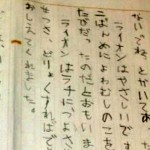 ないってね。とかいてあ
ライオンはやさしいです
こばんめによわむしのこを
たなのだ。ったのだとおもいま
ライオンはラチに、つよさ
をつき、どりょくすればで
おしえてくれました。